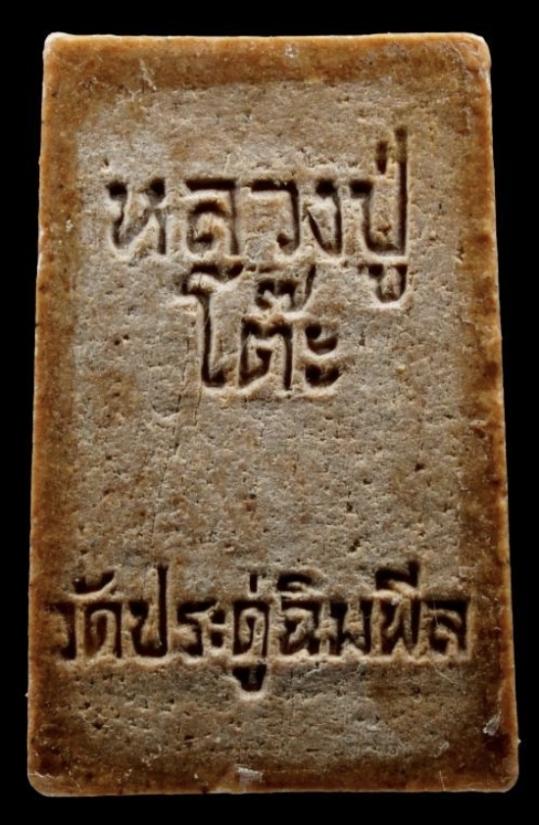 หลวงปู่
โต๊ะ
วัดประดู่ฉิมพลี